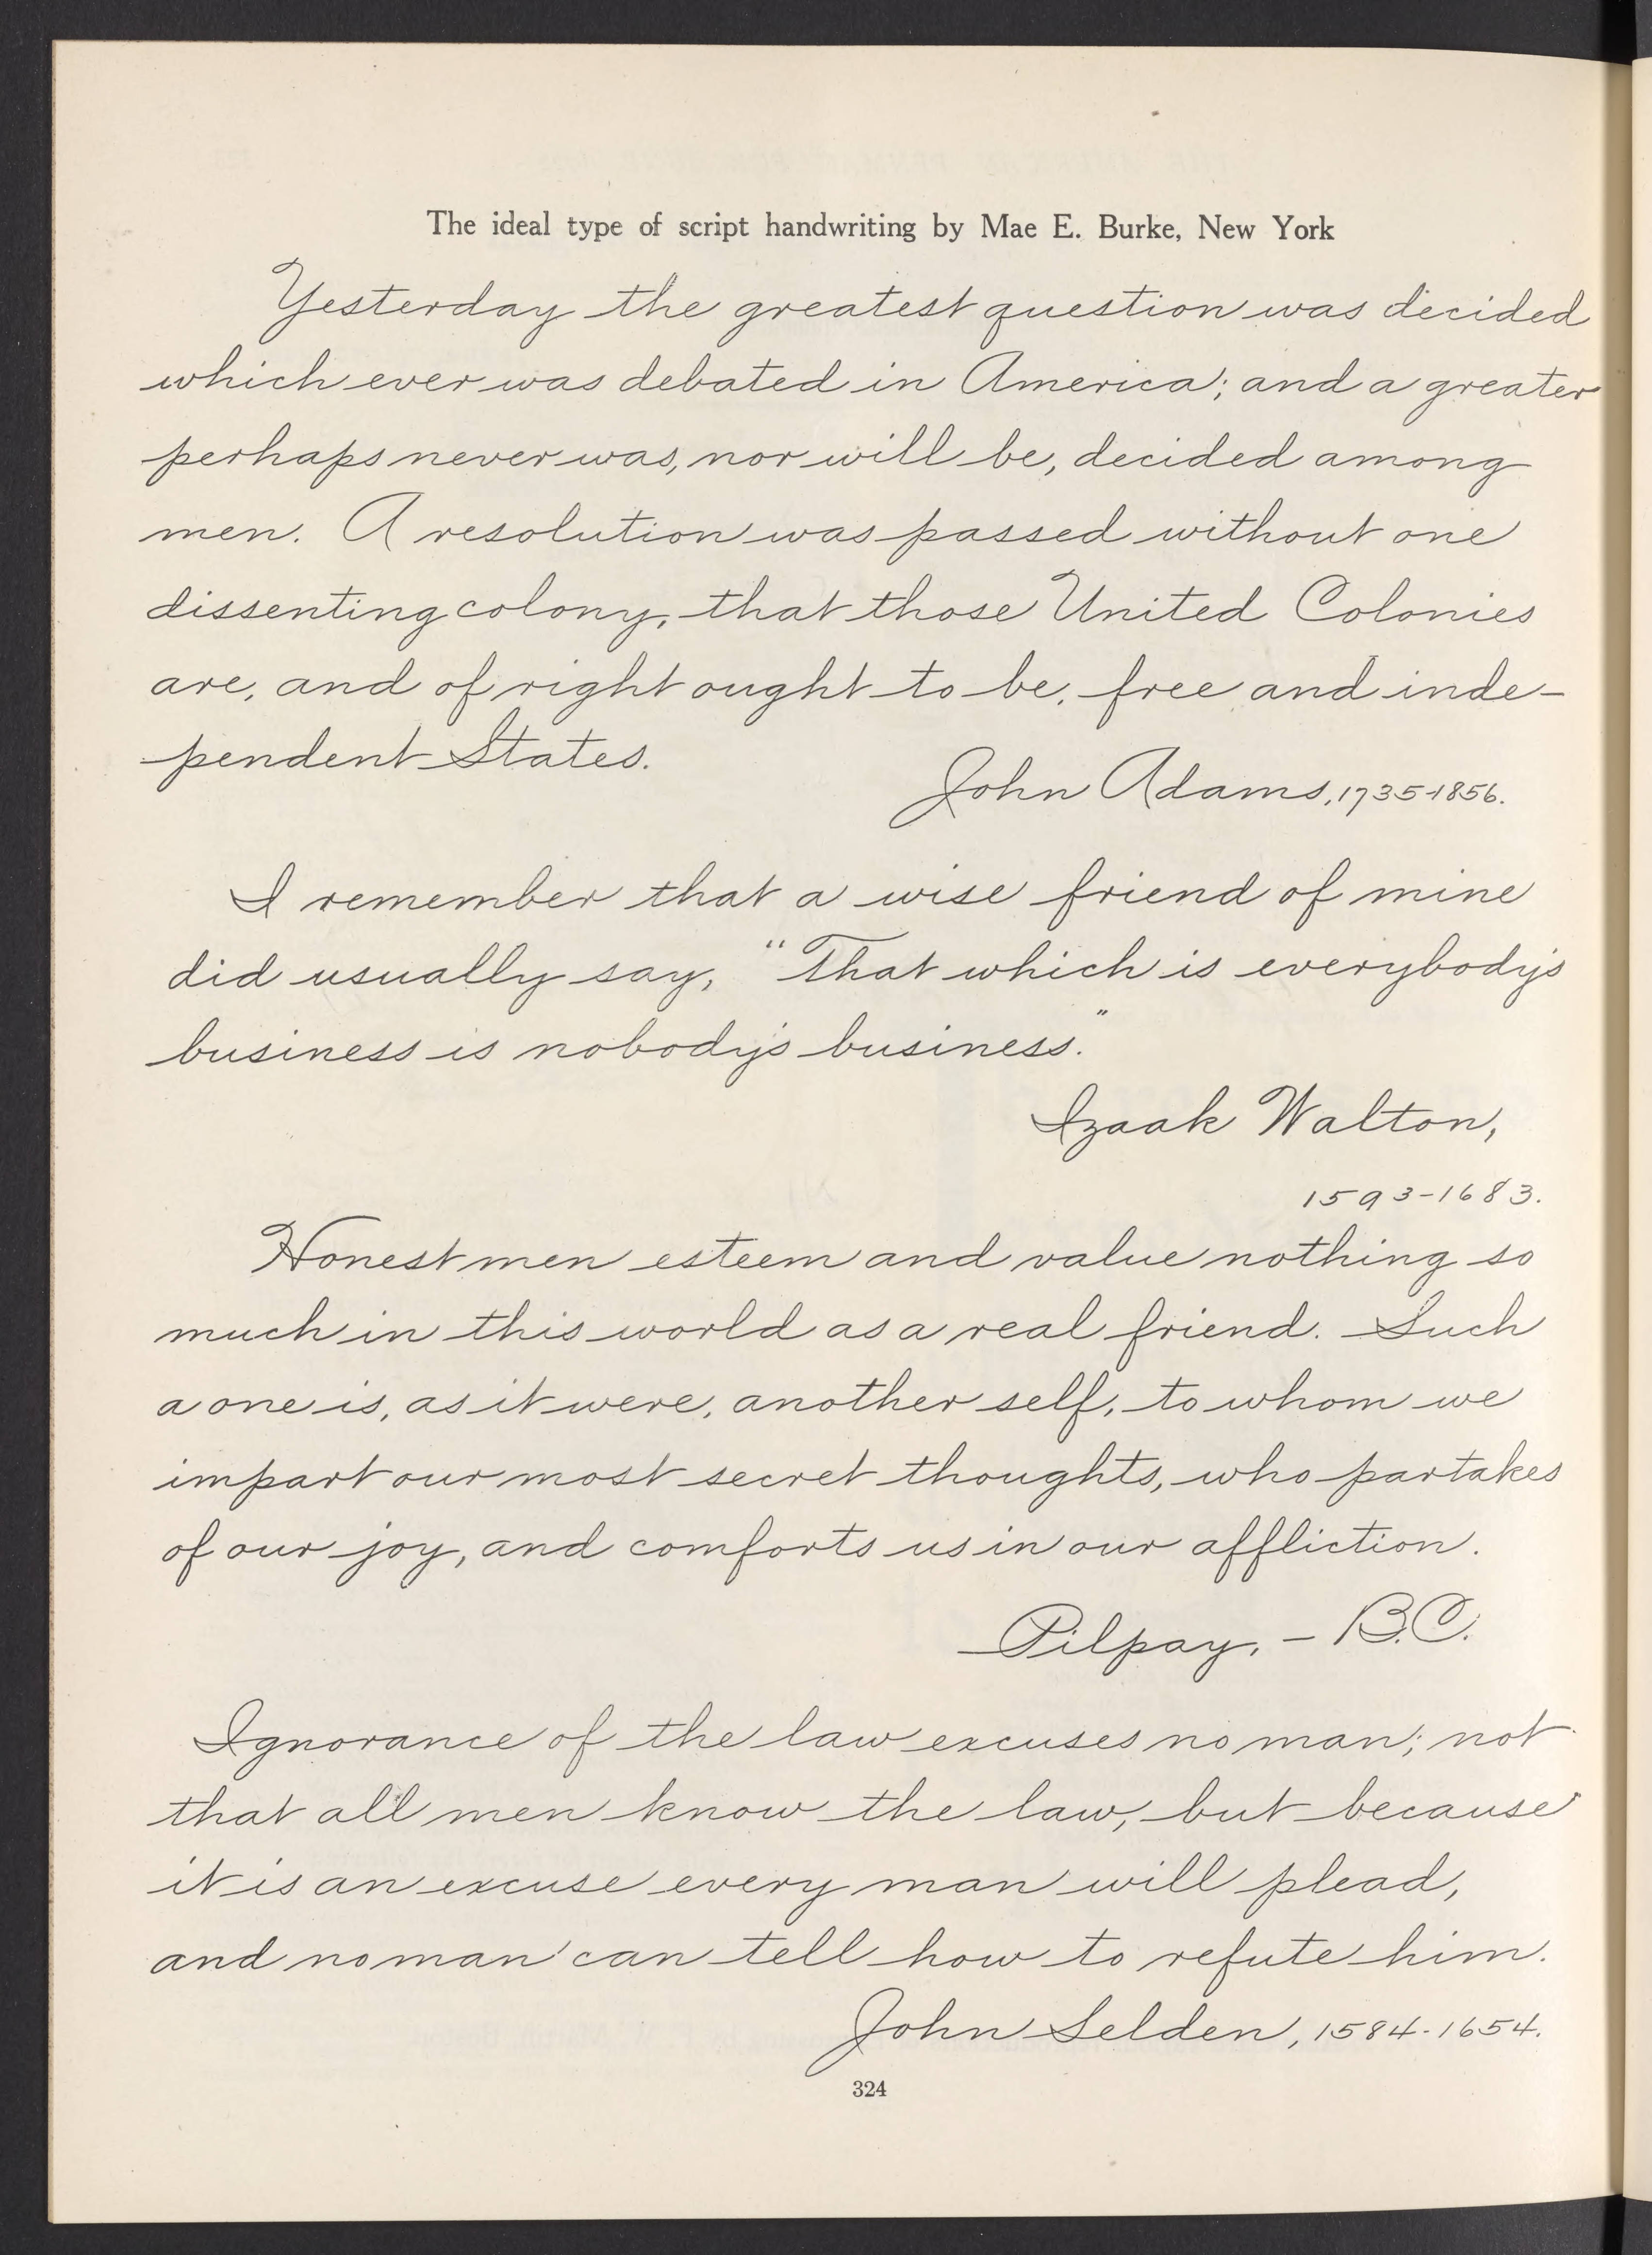 The ideal type of script handwriting by Mae E. Burke, New York
Yesterday the greatest question was decided
which ever was debated in America; and a greater
perhaps never was, nor will be, decided among
men. A resolution was passed without one
dissenting colony, that those United Colonies
are, and of right ought to be, free and inde-
pendent States.
John Adams, 1735-1856.
I remember that a wise friend of mine
did usually say, "That which is everybody's
business is nobody's business."
Izaak Walton,
1593-1683.
Honest men esteem and value nothing so
much in this world as a real friend. Such
a one is, as it were, another self, to whom we
impart our most secret thoughts, who partakes
of our joy, and comforts us in our affliction.
Pilpay, - B.C.
Ignorance of the law excuses no man; not
that all men know the law, but because
it is an excuse every man will plead,
and no man can tell how to refute him.
John Selden, 1584-1654.
324